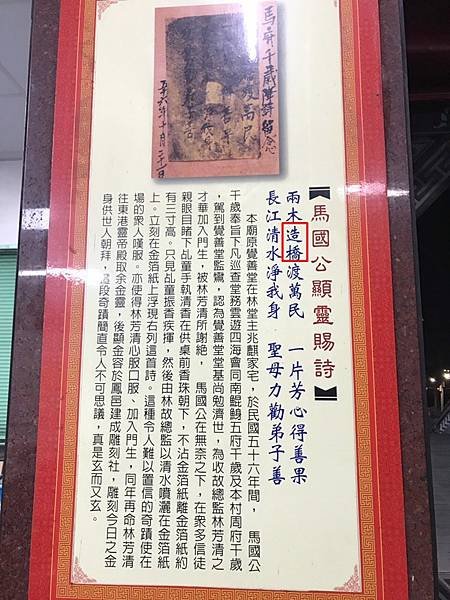 馬府千歲降詩留念
五十六年十月二十一日
【馬國公顯靈賜詩】
兩木造橋渡萬民　一片芳心得善果
長江清水淨我身　聖母力勸弟子善
本廟原覺善堂在林堂主兆麒家宅，於民國五十六年間，　馬國公
千歲奉旨下凡巡查堂務雲遊四海會同南鯤鯓五府千歲及本村周府千歲
，駕到覺善堂監鸞，認為覺善堂堂基尚勉濟世，為收故總監林芳清之
才華加入門生，被林芳清所謝絕，　馬國公在無奈之下，在眾多信徒
親眼目睹下乩童手執清香在供桌前香珠朝下，不沾金箔紙離金箔紙約
有三寸高。只見乩童振香疾揮，然後由林故總監以清水噴灑在金箔紙
上。立刻在金箔紙上浮現右列這首詩。這種令人難以置信的奇蹟使在
場的眾人嘆服。亦使得林芳清心服口服、加入門生，同年再命林芳清
往東港靈帝殿取余金靈，後顯金容於鳳邑建成雕刻社，雕刻今日之金
身供世人朝拜，這段奇蹟簡直令人不可思議，真是玄而又玄。